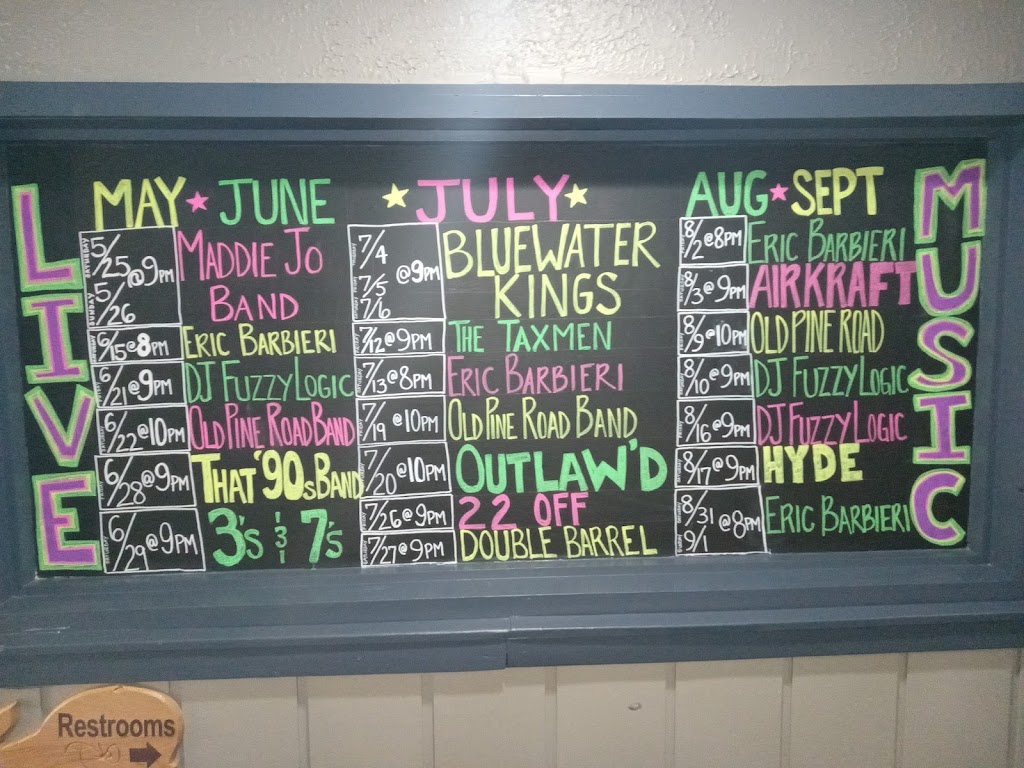 LIVE
MAY ★ JUNE
SATURDAY 5/25 @ 9PM MADDIE JO
SUNDAY 5/26 BAND
6/15 @ 8PM ERIC BARBIERI
6/21 @ 9PM DJ FUZZYLOGIC
6/22 @ 10PM OLD PINE ROAD BAND
6/28 @ 9PM THAT '90s BAND
6/29 @ 9PM 3's & 7's
★ JULY ★
7/4 BLUEWATER
7/5 @ 9PM KINGS
7/6
7/12 @ 9PM THE TAXMEN
7/13 @ 8PM ERIC BARBIERI
7/19 @ 10PM OLD PINE ROAD BAND
7/20 @ 10PM OUTLAW'D
7/26 @ 9PM 22 OFF
7/27 @ 9PM DOUBLE BARREL
AUG ★ SEPT
8/2 @ 8PM ERIC BARBIERI
8/3 @ 9PM AIRKRAFT
8/9 @ 10PM OLD PINE ROAD
8/10 @ 9PM DJ FUZZYLOGIC
8/16 @ 9PM DJ FUZZYLOGIC
8/17 @ 9PM HYDE
8/31 @ 8PM ERIC BARBIERI
9/1
MUSIC
Restrooms